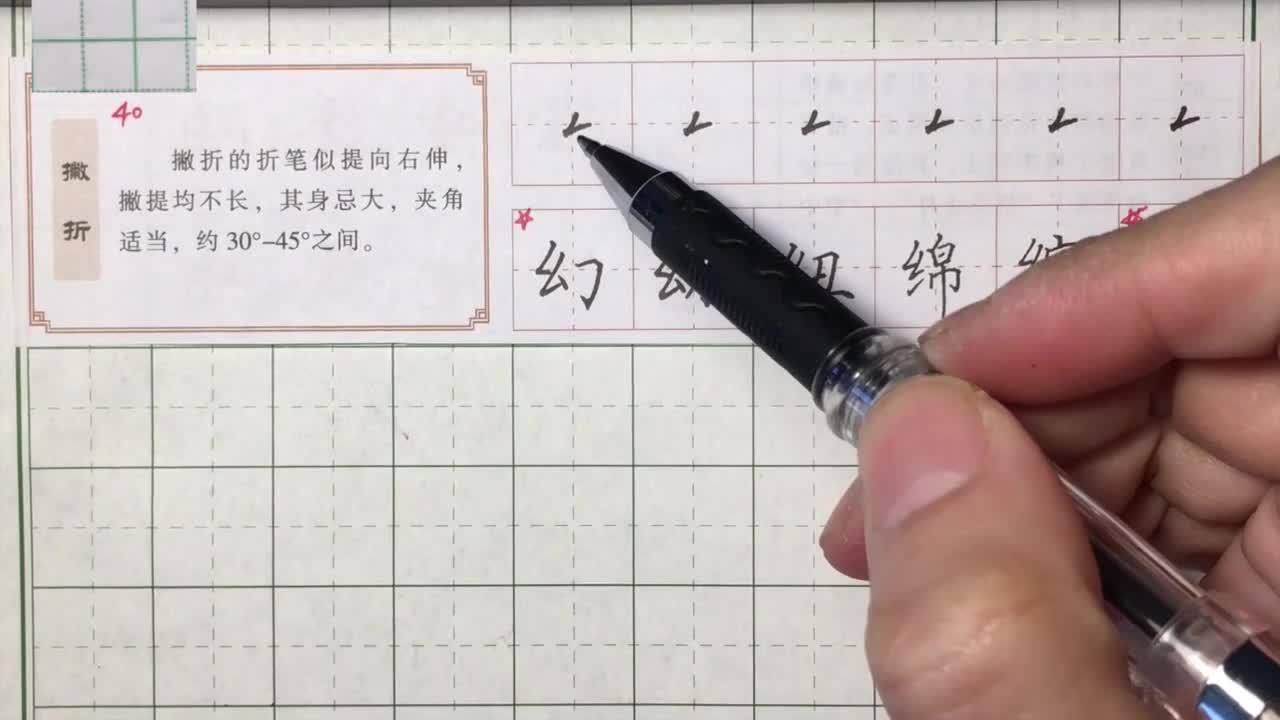 40
撇折
撇折的折笔似提向右伸，
撇提均不长，其身忌大，夹角
适当，约 30°–45°之间。
幻 幼 纽 绵